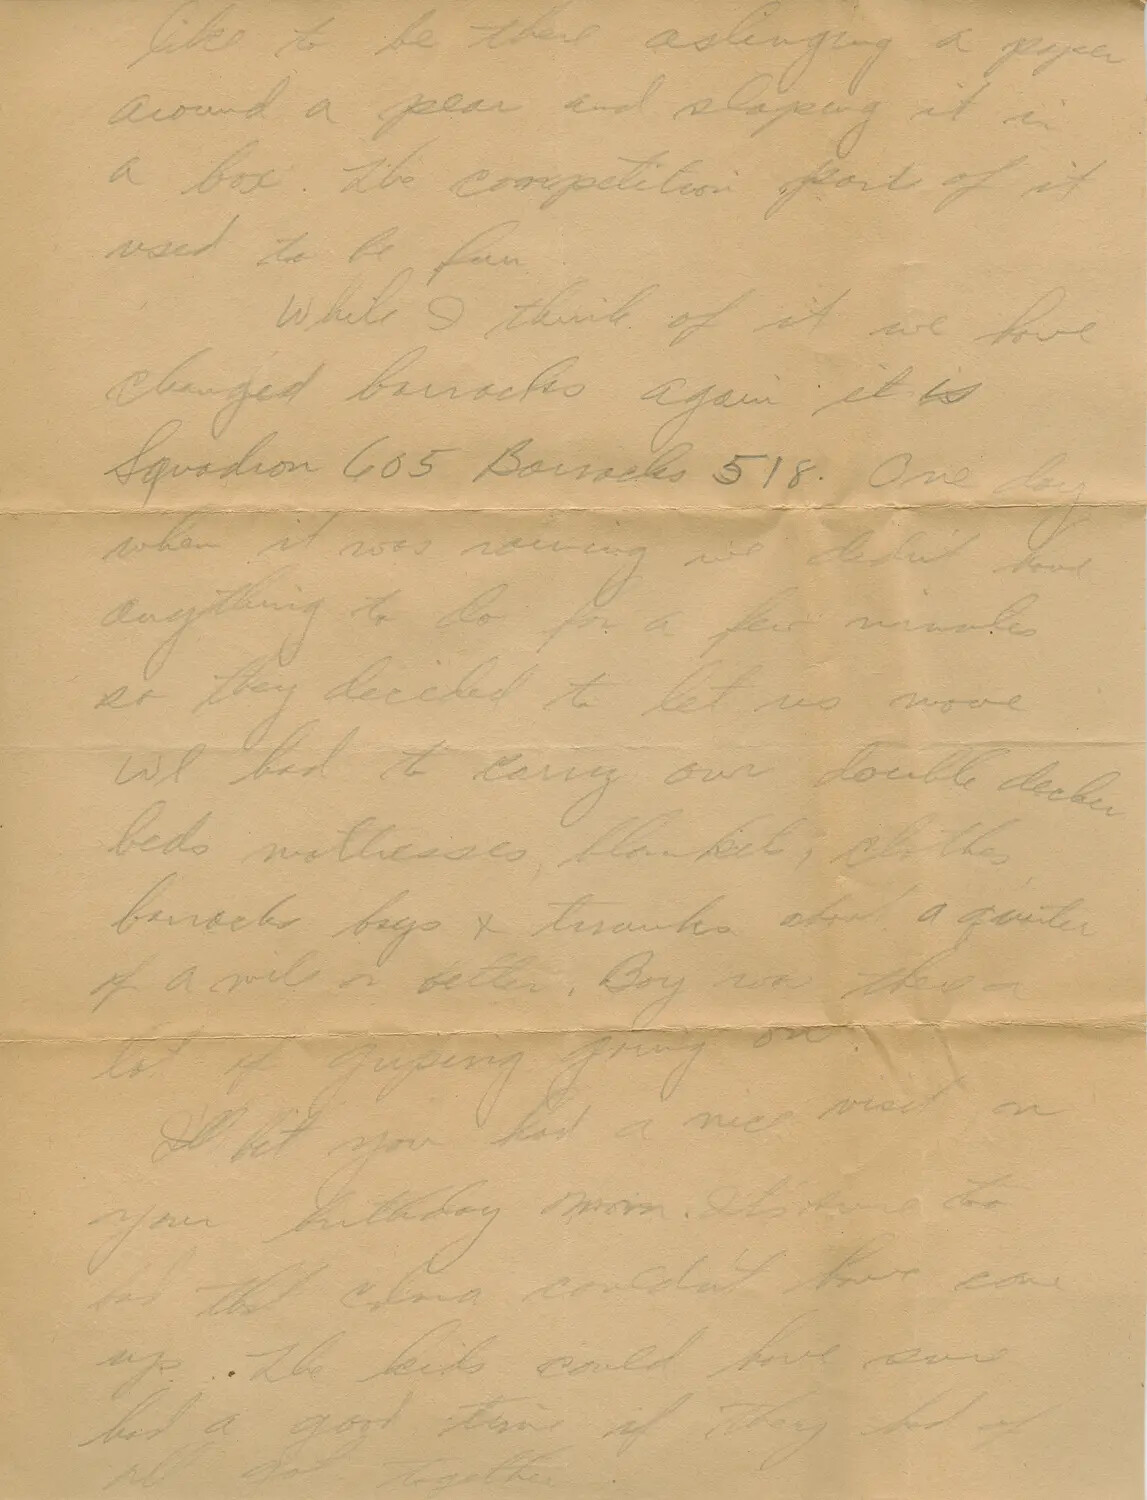 like to be there aslinging a paper
around a pear and slaping it in
a box. The competition part of it
used to be fun
While I think of it we have
changed barracks again it is
Squadron 605 Barracks 518. One day
when it was raining we didn't have
anything to do for a few minutes
so they decided to let us move
We had to carry our double decker
beds mattresses, blankets, clothes,
barracks bags & trunks about a quarter
of a mile or better. Boy was there a
lot of griping going on.
I'll bet you had a nice visit on
your birthday Mom. It's too
bad that couldn't have come
up. The kids could have sure
had a good time if they had of
all got together.